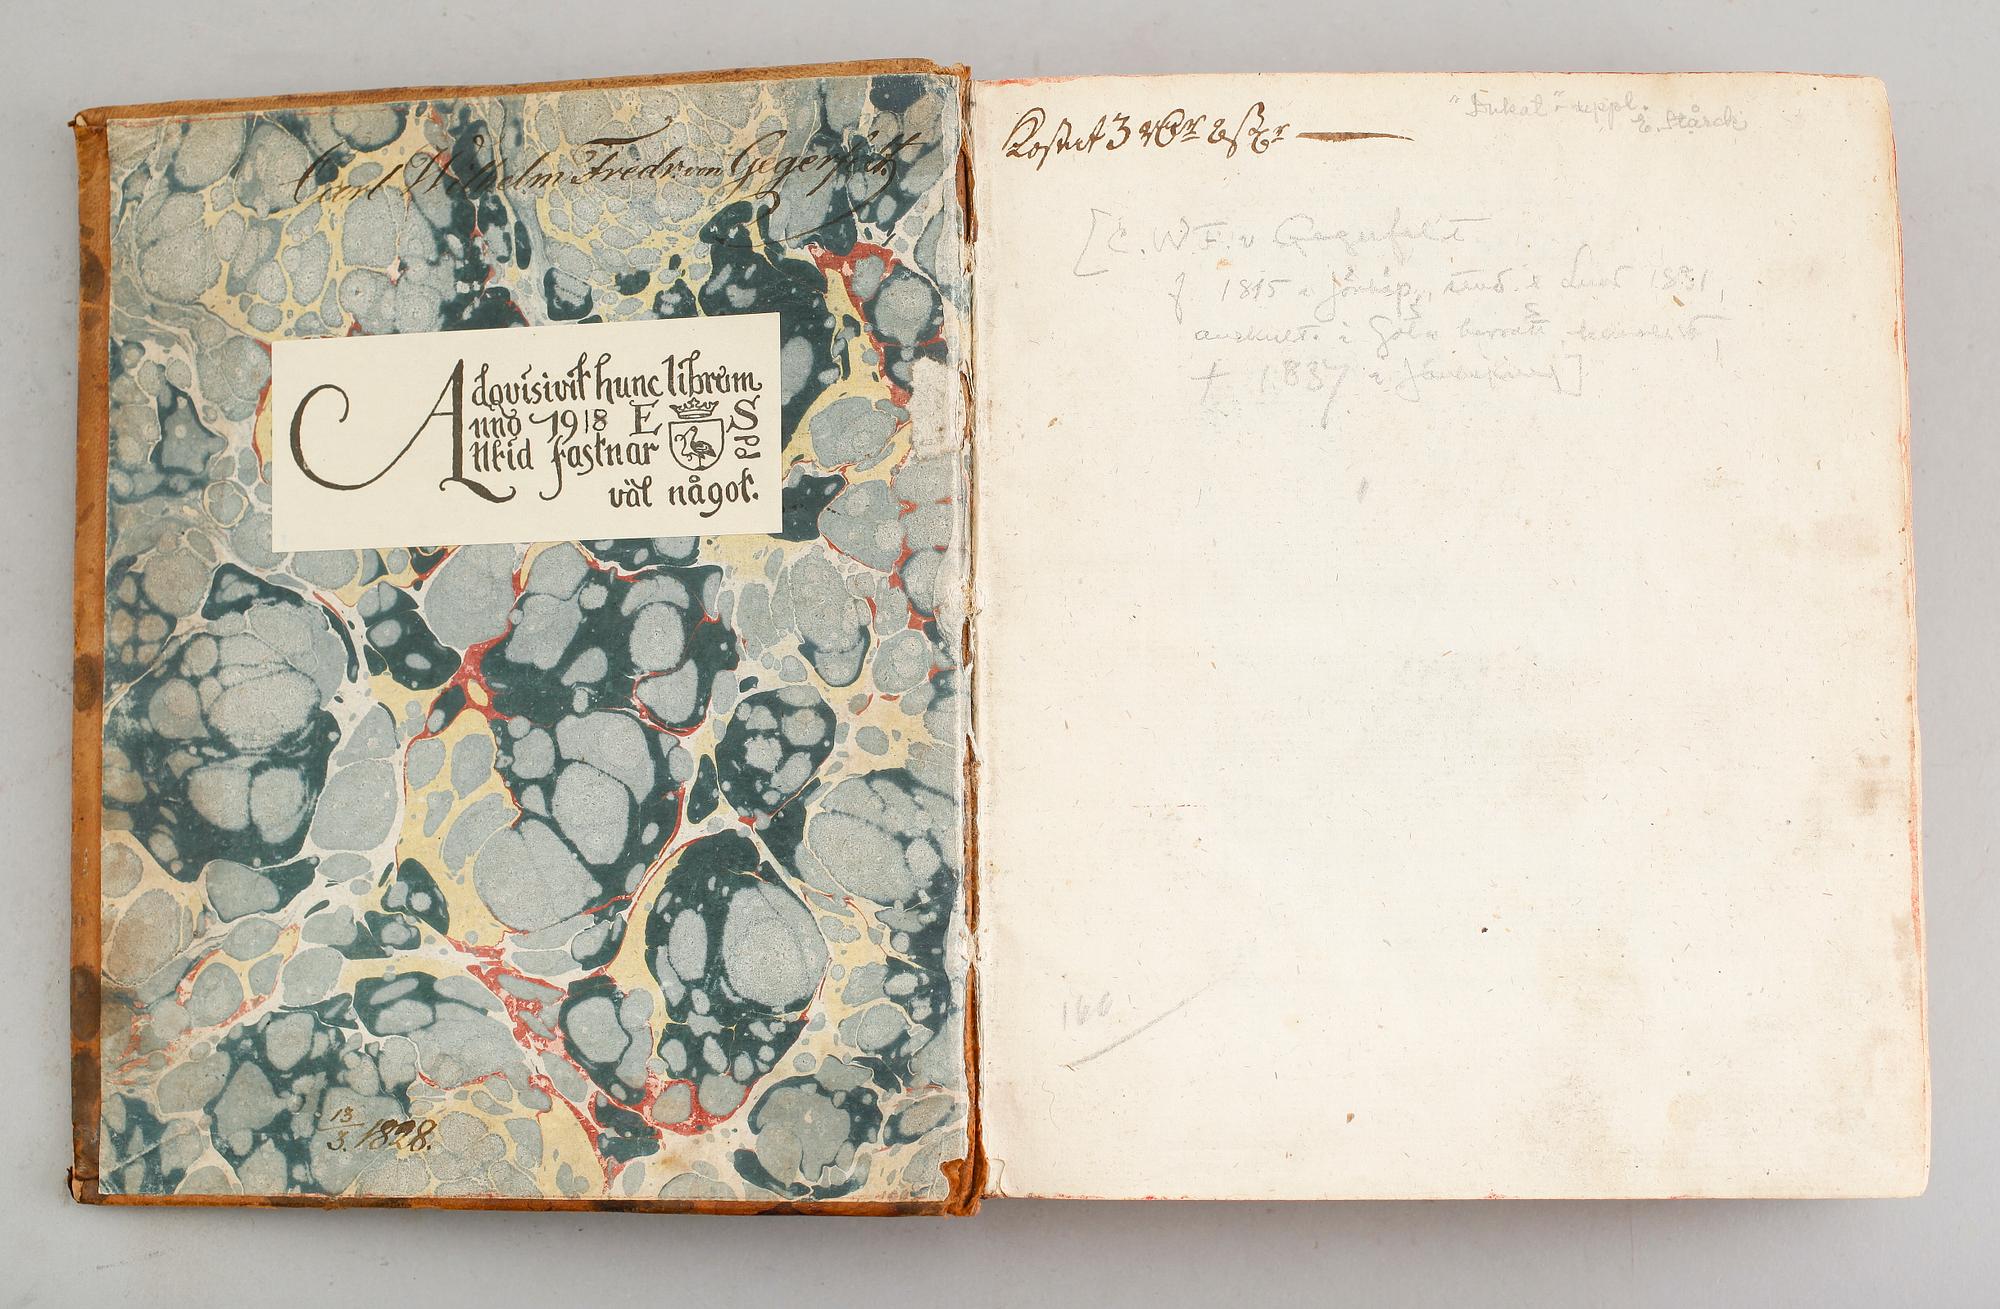 Carl Wilhelm Fredr. von Gegerfelt.
Adqvisivit hunc librum
Anno 1918 E S
Alltid fastnar
väl något.
13/3. 1828.
"Dukat"-uppl.
Kostat 3
[C. W F. v Gegerfelt
f 1815 i Jönköp., stud. i Lund 1831,
auskult. i Göta hovrätt
† 1837 i Jönköping]
160